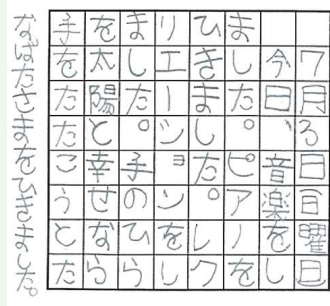 7月3日日曜日
今日、音楽をし
ました。ピアノを
ひきました。レク
リエーションをし
ました。手のひら
を太陽と幸せなら
手をたたこうとた
なばたさまをひきました。